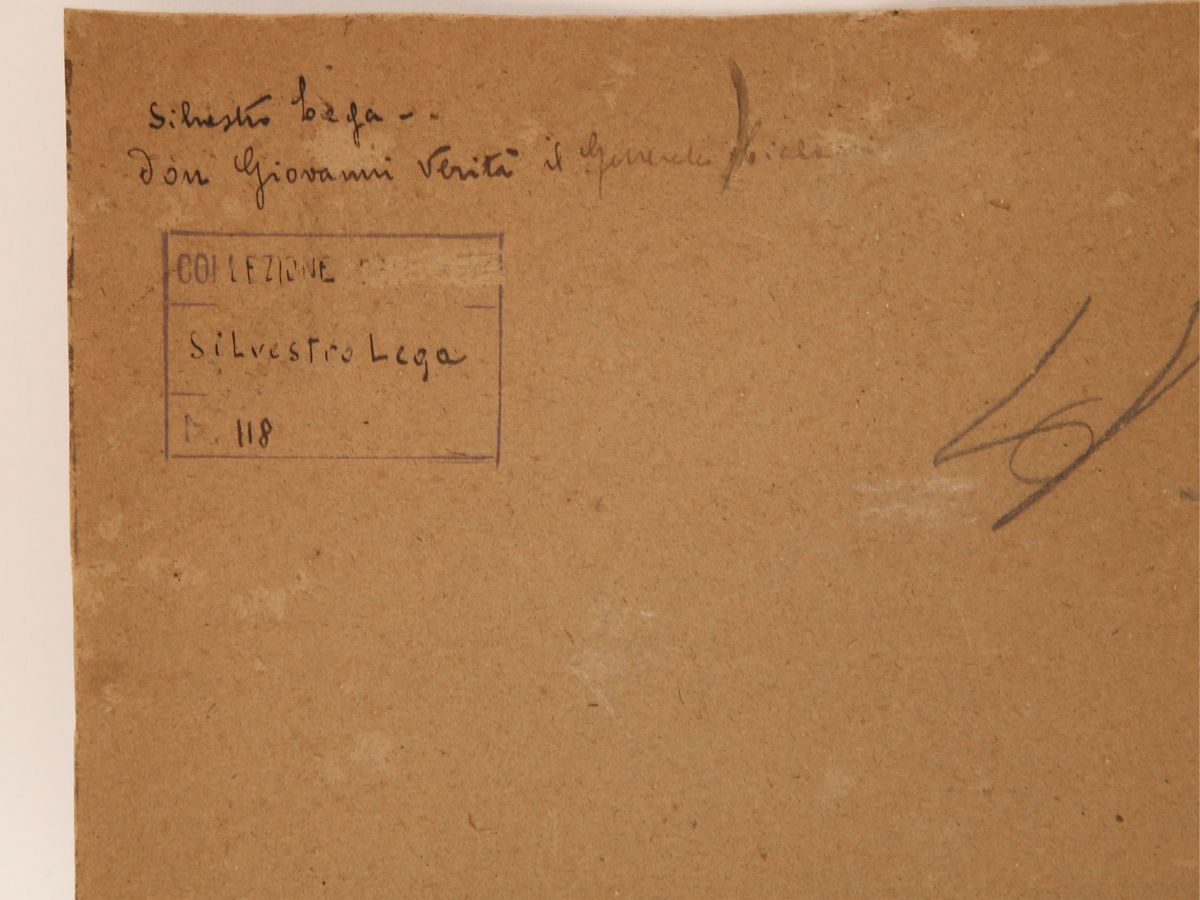 Silvestro Lega - .
Don Giovanni Verità il Generale
COLLEZIONE
Silvestro Lega
N. 118